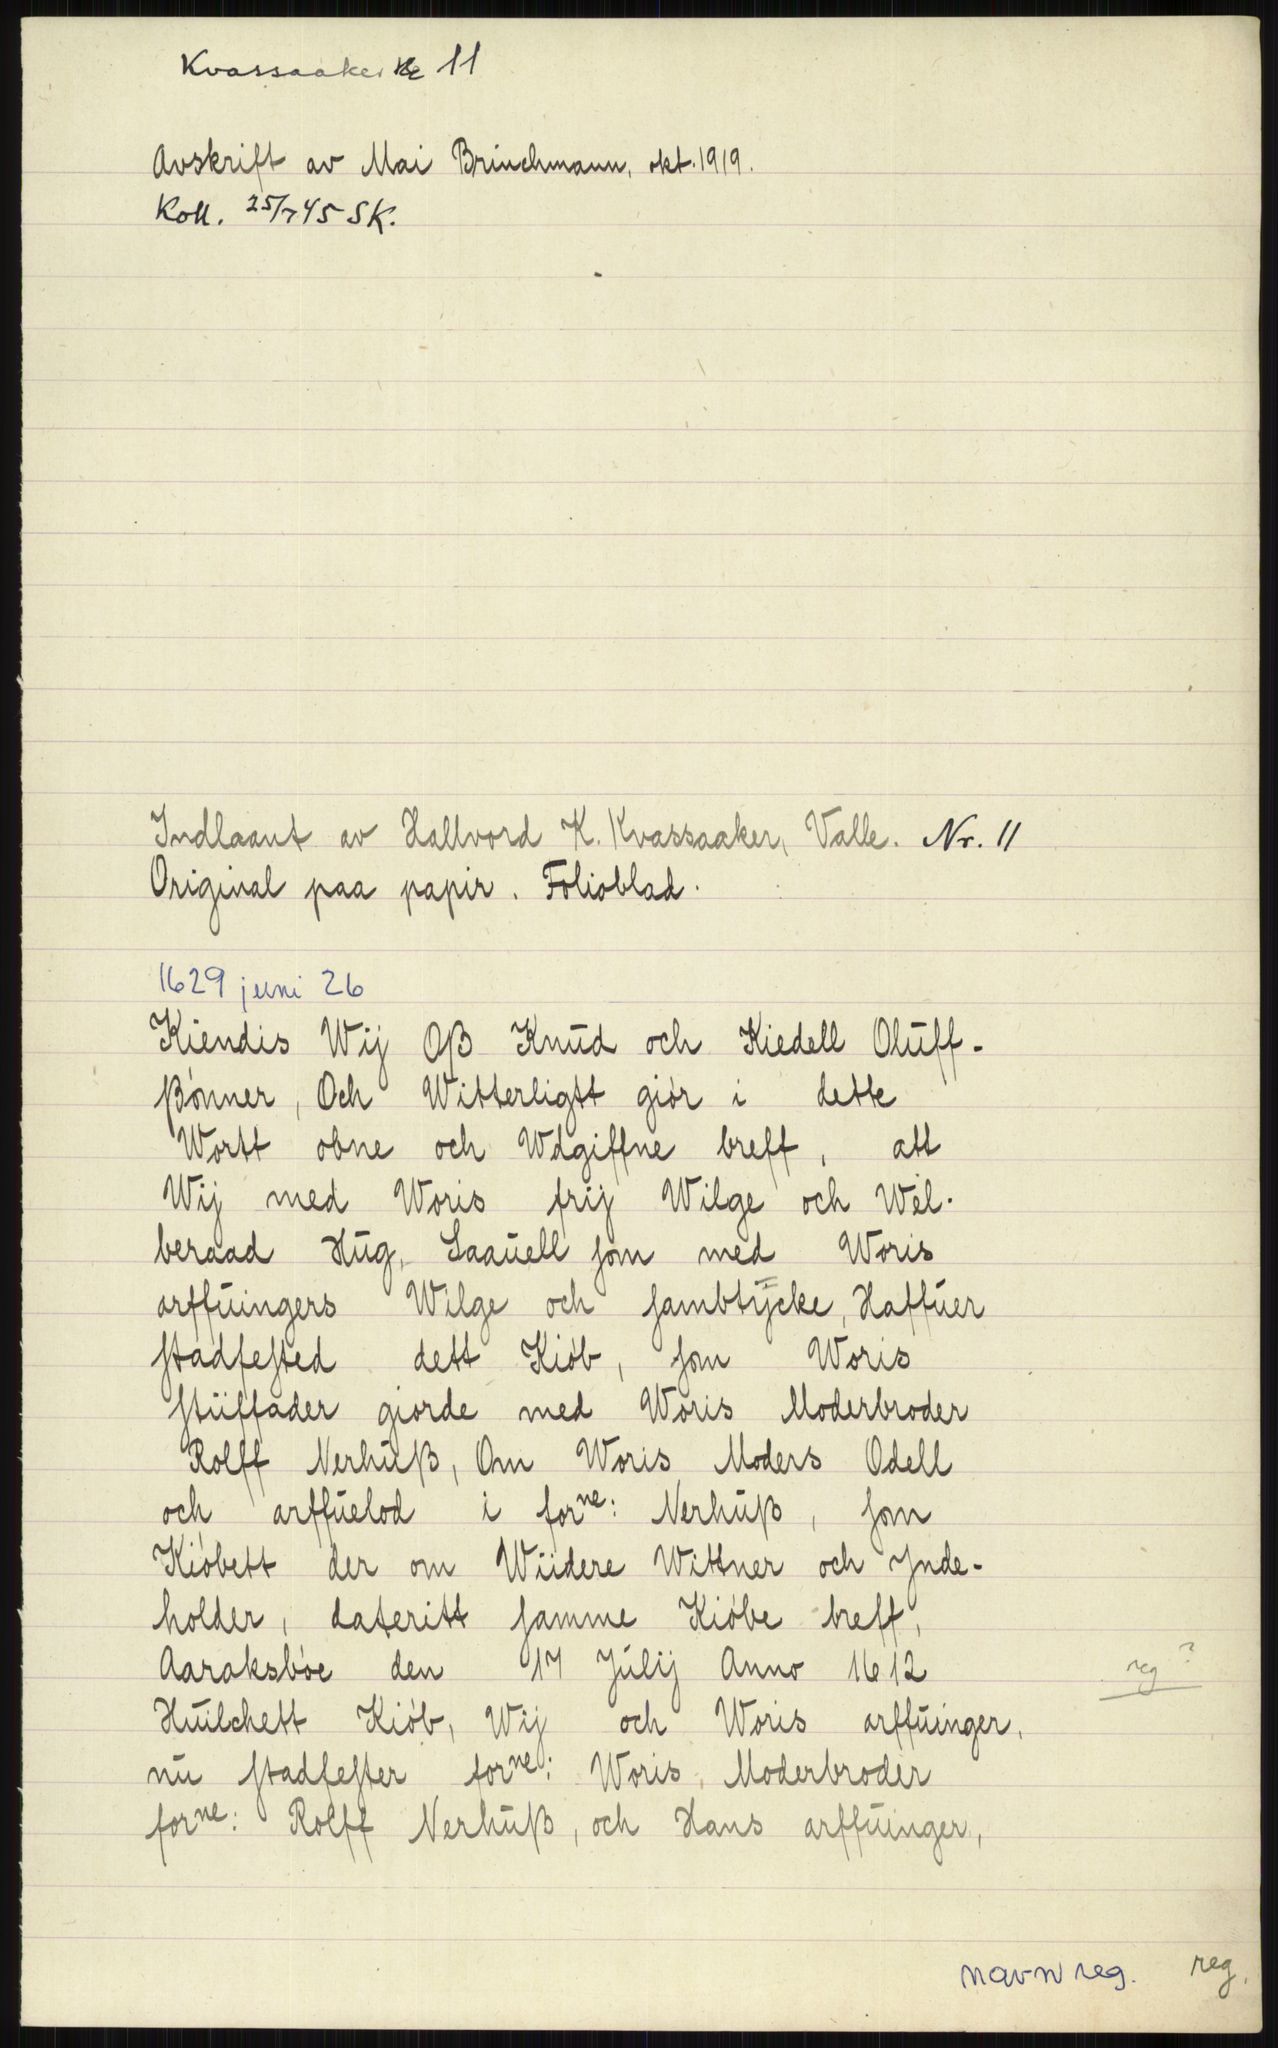 Kvassaaker Nr 11
Avskrift av Mai Brinchmann, okt. 1919.
Koll. 25/7 45 SK.
Indlaant av Hallvord K. Kvassaaker, Valle. Nr. 11
Original paa papir. Folioblad.
1629 juni 26
Kiendis Wij Oß Knud och Kiedell Oluff-
ßónner, Och Witterligtt giór i dette
Wortt obne och Wdgiffne breff, att
Wij med Woris frij Wilge och Wel-
beraad Hug, Laauell som med Woris
arffuingers Wilge och sambtÿcke, Haffuer
stadfested dett Kiób, som Woris
stüffader giorde med Woris Moderbroder
Rolff Nerhuß, Om Woris Moders Odell
och arffuelod i forne: Nerhuß, som
Kióbett der om Wiidere Wittner och Ynde-
holder, dateritt samme Kióbe breff,
Aaraksbóe den 17 Julij Anno 1612
reg ?
Huilchett Kiób, Wij och Woris arffuinger,
nu stadfester forne: Woris Moderbroder
forne: Rolff Nerhuß, och Hans arffuinger,
navnreg. reg.